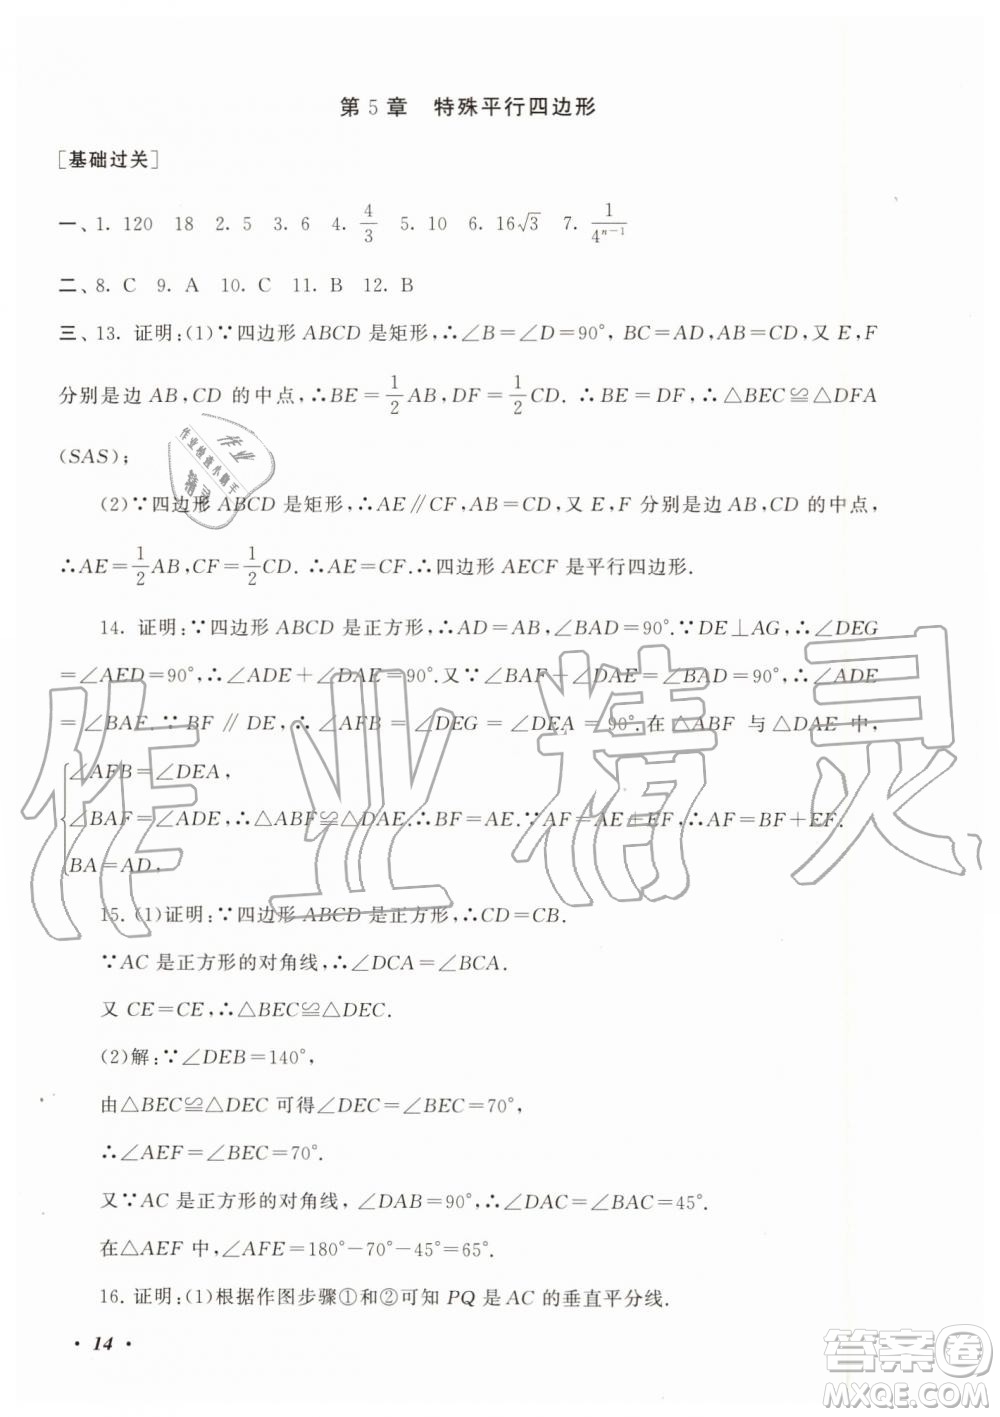 第 5 章　特殊平行四边形
[基础过关]
一、1. 120　18　2. 5　3. 6　4. 4/3　5. 10　6. 16√3　7. 1/4ⁿ⁻¹
二、8. C　9. A　10. C　11. B　12. B
三、13. 证明:(1)∵四边形 ABCD 是矩形,∴∠B=∠D=90°, BC=AD, AB=CD, 又 E, F
分别是边 AB, CD 的中点,∴BE=1/2AB, DF=1/2CD. ∴BE=DF,∴△BEC≌△DFA
(SAS);
(2)∵四边形 ABCD 是矩形,∴AE∥CF, AB=CD, 又 E, F 分别是边 AB, CD 的中点,
∴AE=1/2AB, CF=1/2CD. ∴AE=CF.∴四边形 AECF 是平行四边形.
14. 证明:∵四边形 ABCD 是正方形,∴AD=AB,∠BAD=90°.∵DE⊥AG,∴∠DEG
=∠AED=90°.∴∠ADE+∠DAE=90°.又∵∠BAF+∠DAE=∠BAD=90°,∴∠ADE
=∠BAF.∵BF∥DE,∴∠AFB=∠DEG=∠DEA=90°.在△ABF 与△DAE 中,
∠AFB=∠DEA,
∠BAF=∠ADE,∴△ABF≌△DAE.∴BF=AE.∵AF=AE+EF,∴AF=BF+EF.
BA=AD,
15. (1)证明:∵四边形 ABCD 是正方形,∴CD=CB.
∵AC 是正方形的对角线,∴∠DCA=∠BCA.
又 CE=CE,∴△BEC≌△DEC.
(2)解:∵∠DEB=140°,
由△BEC≌△DEC 可得∠DEC=∠BEC=70°,
∴∠AEF=∠BEC=70°.
又∵AC 是正方形的对角线,∠DAB=90°,∴∠DAC=∠BAC=45°.
在△AEF 中,∠AFE=180°-70°-45°=65°.
16. 证明:(1)根据作图步骤①和②可知 PQ 是 AC 的垂直平分线.
· 14 ·
作业
作业检查小助手
精灵
作业精灵
答案圈
MXQE.COM